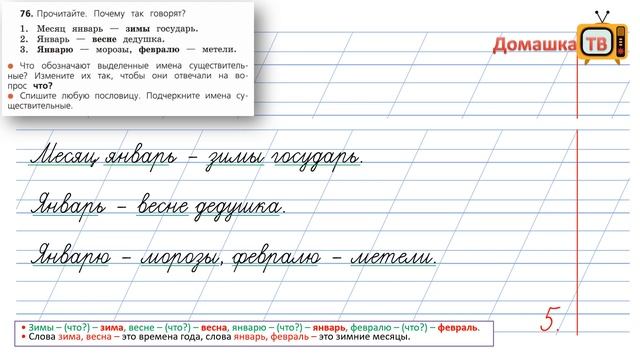 76. Прочитайте. Почему так говорят?
1. Месяц январь — зимы государь.
2. Январь — весне дедушка.
3. Январю — морозы, февралю — метели.
● Что обозначают выделенные имена существитель-
ные? Измените их так, чтобы они отвечали на во-
прос что?
● Спишите любую пословицу. Подчеркните имена су-
ществительные.
Домашка ТВ
Месяц январь – зимы государь.
Январь – весне дедушка.
Январю – морозы, февралю – метели.
5.
• Зимы – (что?) – зима, весне – (что?) – весна, январю – (что?) – январь, февралю – (что?) – февраль.
• Слова зима, весна – это времена года, слова январь, февраль – это зимние месяцы.